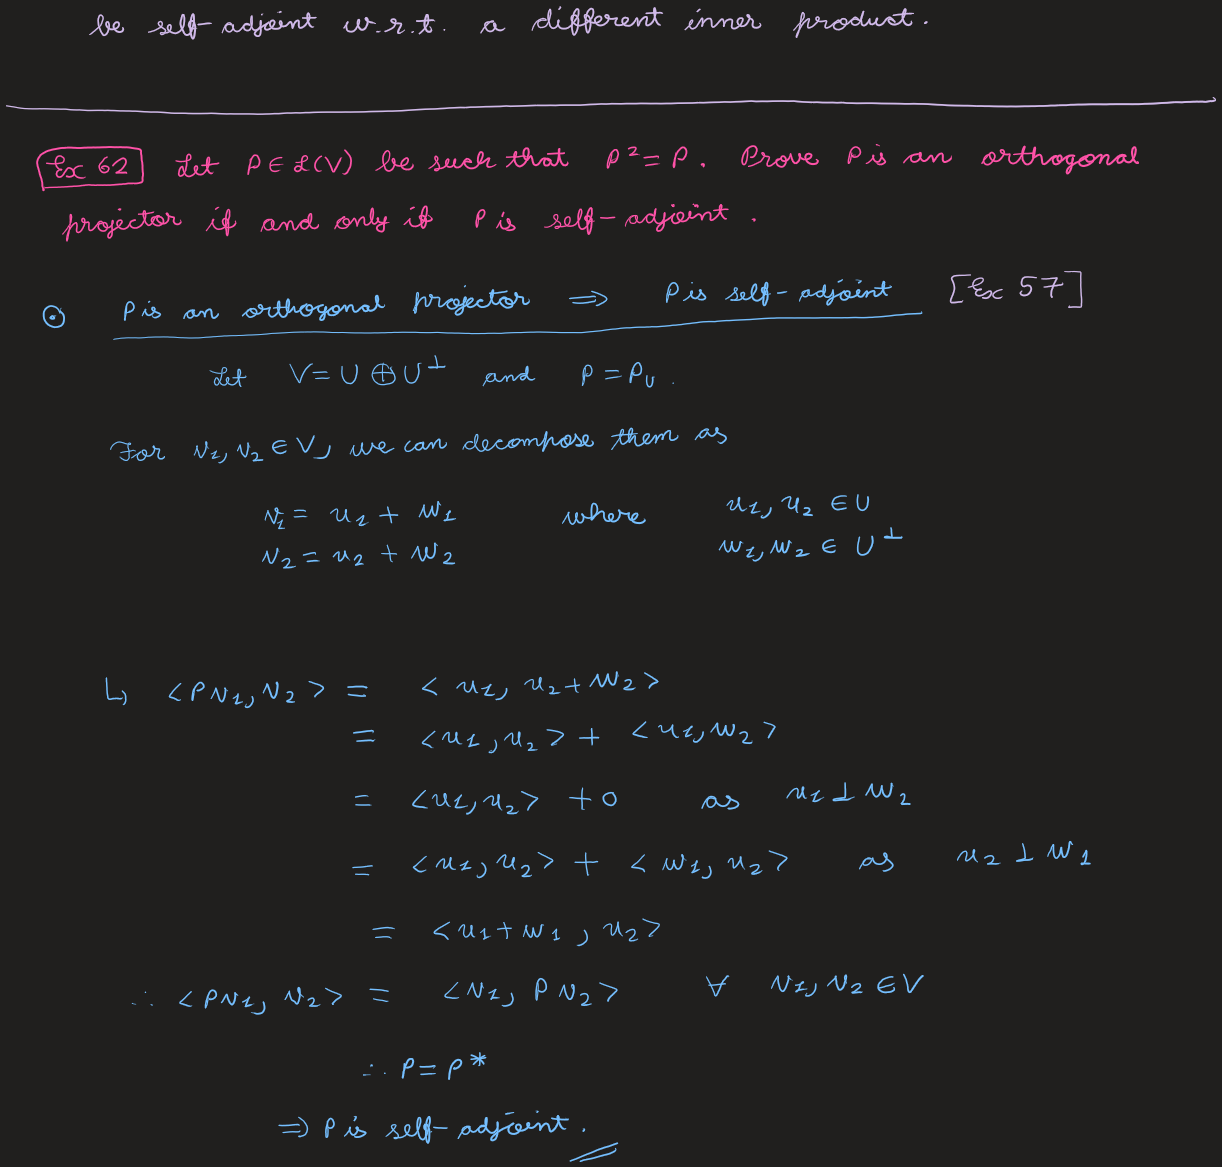 be self-adjoint w.r.t. a different inner product.
Ex 62 Let P ∈ L(V) be such that P² = P. Prove P is an orthogonal
projector if and only if P is self-adjoint.
⊙ P is an orthogonal projector ⇒ P is self-adjoint [Ex 57]
Let V = U ⊕ U^⊥ and P = P_U.
For v₁, v₂ ∈ V, we can decompose them as
v₁ = u₁ + w₁ where u₁, u₂ ∈ U
v₂ = u₂ + w₂ w₁, w₂ ∈ U^⊥
↳ <Pv₁, v₂> = <u₁, u₂ + w₂>
= <u₁, u₂> + <u₁, w₂>
= <u₁, u₂> + 0 as u₁ ⊥ w₂
= <u₁, u₂> + <w₁, u₂> as u₂ ⊥ w₁
= <u₁ + w₁, u₂>
∴ <Pv₁, v₂> = <v₁, Pv₂> ∀ v₁, v₂ ∈ V
∴ P = P*
⇒ P is self-adjoint.